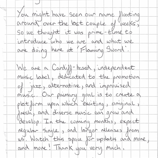 You might have seen our name floating
around over the last couple of weeks,
so we thought it was prime time to
introduce who we are and what we
are doing here at 'Flowing Sound'.
We are a Cardiff-based, independent
music label, dedicated to the promotion
of jazz, alternative, and improvised
music. Our primary goal is to create a
platform upon which exciting, original,
fresh, and diverse music can grow and
develop. In the coming months, expect
regular singles, and larger releases from
us. Watch this space for updates and more,
and more! Thank you very much,